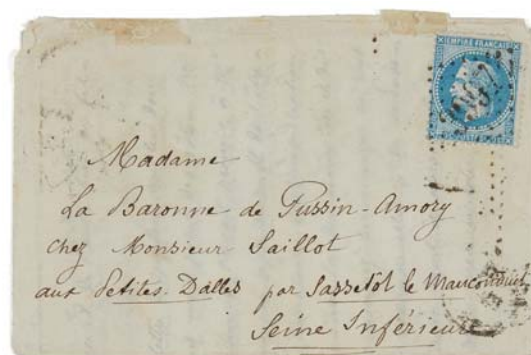 EMPIRE FRANÇAIS
Madame
La Baronne de Pussin-Amory
chez Monsieur Saillot
aux Petites-Dalles par Sassetot le Mauconduit
Seine Inférieure